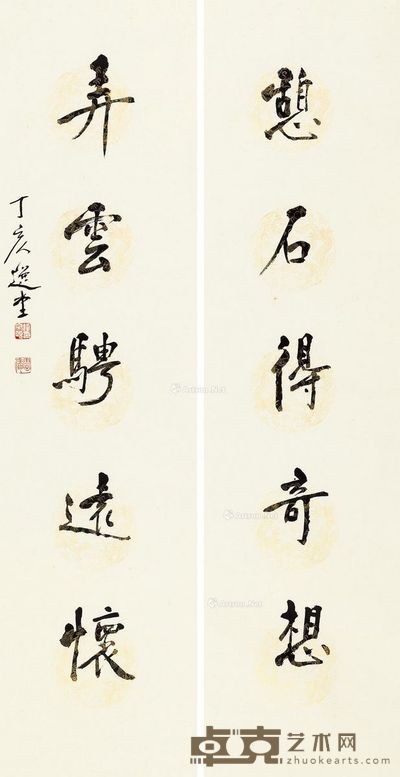 憩石得奇想
弄雲騁遠懷
丁亥選堂
Artron.Net
Artron.Net
Artron.Net
卓克艺术网
zhuokearts.com